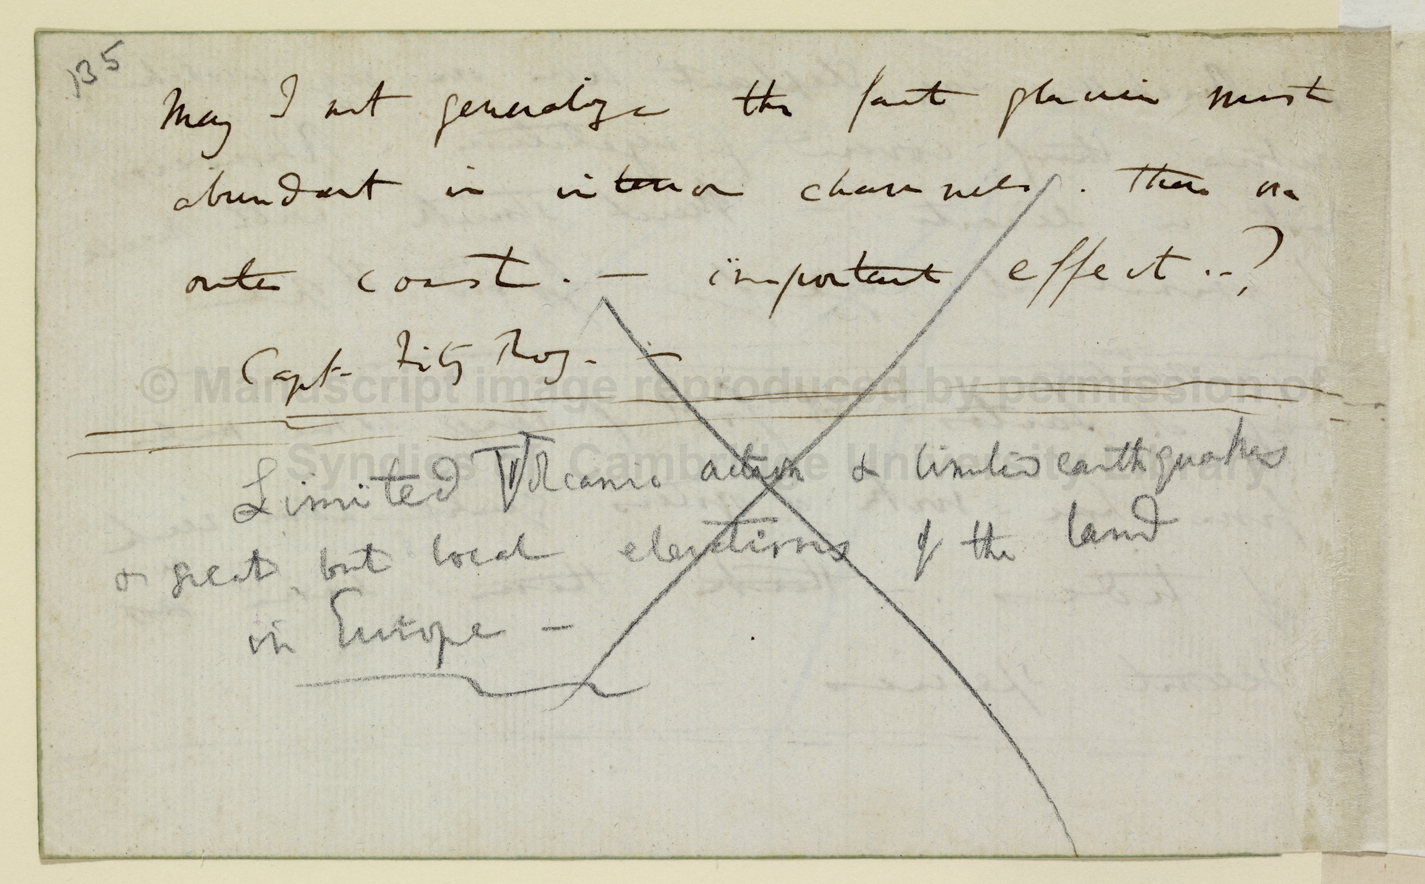 135
May I not generalize the fact glaciers most
abundant in interior channels. than on
outer coast. — important effect..?
Capt. FitzRoy. —
© Manuscript image reproduced by permission of
Syndics of Cambridge University Library
Limited Volcanic action & limited earthquakes
& great but local elevations of the land
in Europe —